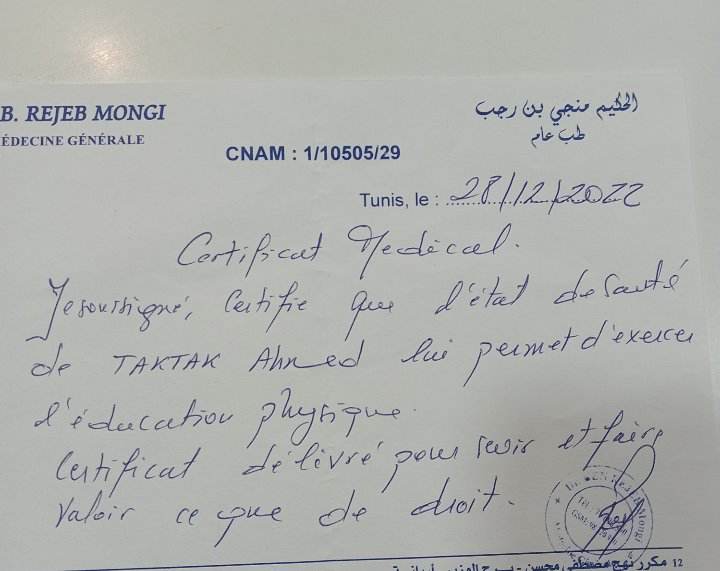 B. REJEB MONGI
الحكيم منجي بن رجب
ÉDECINE GÉNÉRALE
طب عام
CNAM : 1/10505/29
Tunis, le : 28/12/2022
Certificat Medical.
Je soussigné, Certifie que l'état de Santé
de TAKTAK Ahmed lui permet d'exercer
l'éducation physique.
Certificat délivré pour servir et faire
Valoir ce que de droit.
Mongi
12 مكرر نهج مصطفى محسن - برج الوزير أريانة